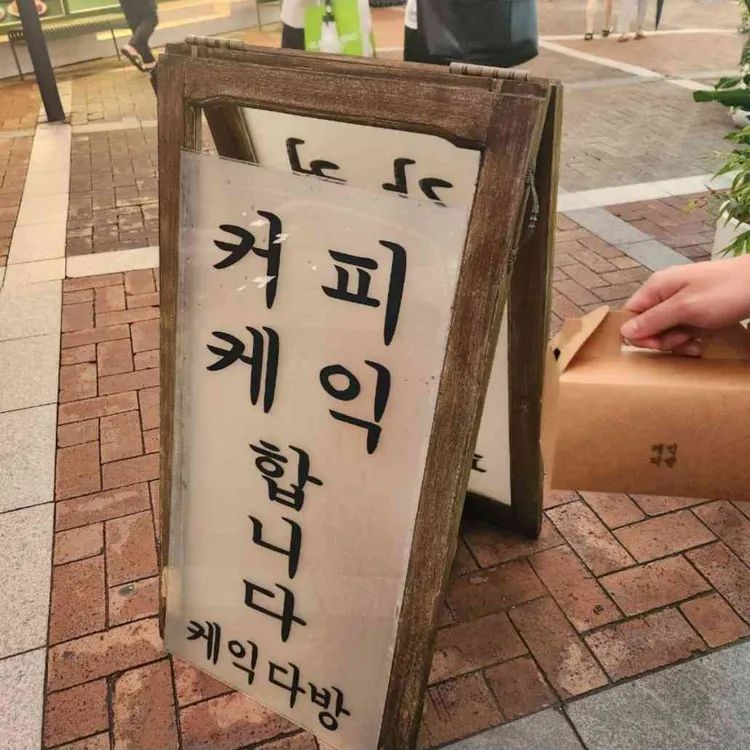 커피
케익
합
니
다
케익다방